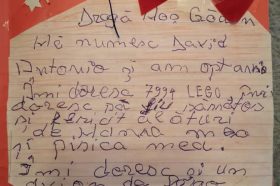 Dragă Moș Gădin
Mă numesc David
Antonio și am opt ani
Îmi doresc 7994 LEGO, îmi
doresc să fiu sănătos
și fericit alături
de Mama mea
și pisica mea.
Îmi doresc și un